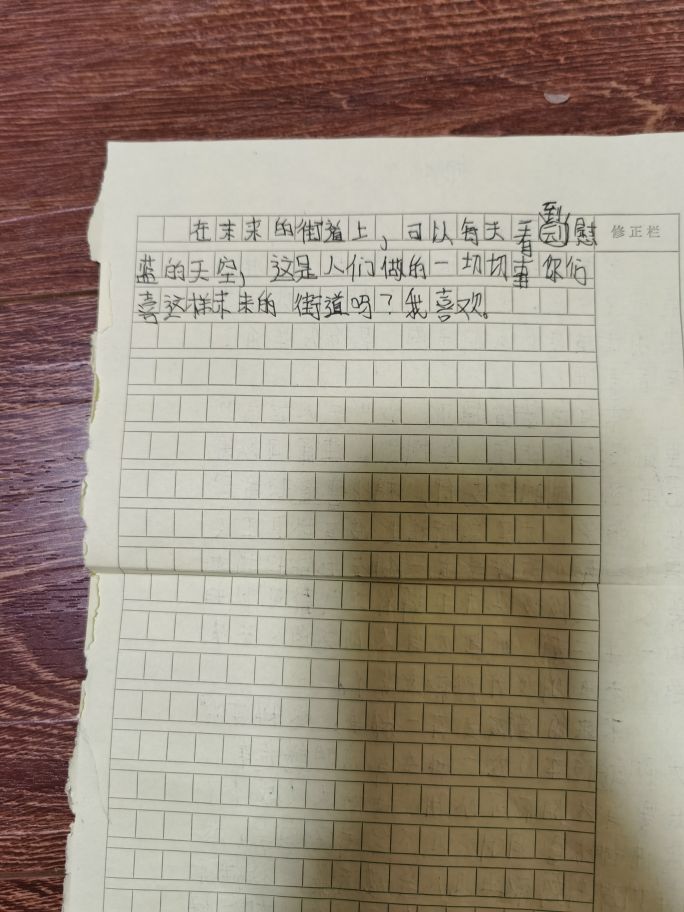 在未来的街道上，可以每天看到慰 修正栏
蓝的天空，这是人们做的一切切事你们
喜这样未来的街道吗？我喜欢。